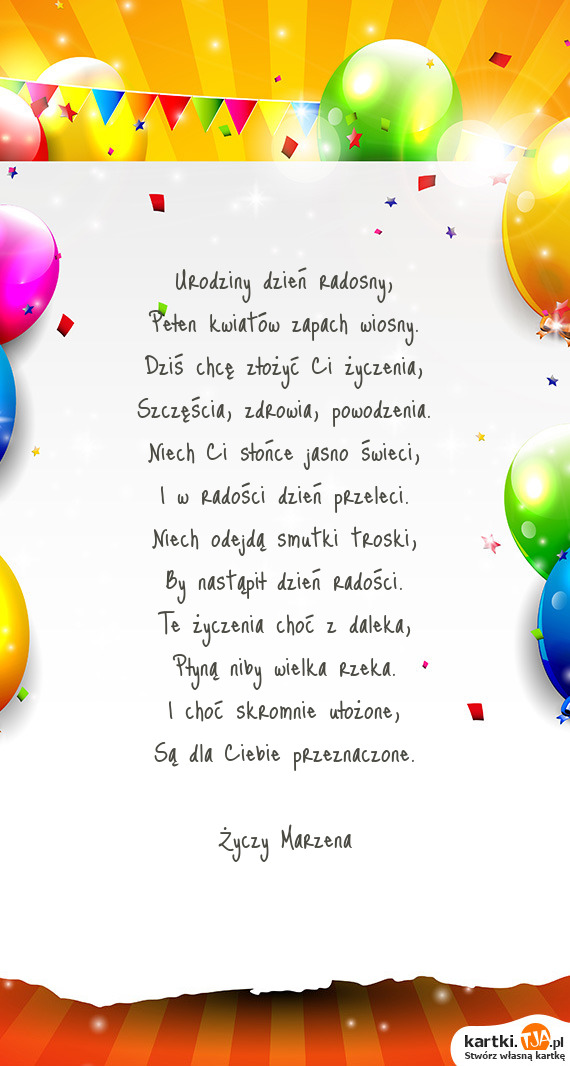 Urodziny dzień radosny,
Pełen kwiatów zapach wiosny.
Dziś chcę złożyć Ci życzenia,
Szczęścia, zdrowia, powodzenia.
Niech Ci słońce jasno świeci,
I w radości dzień przeleci.
Niech odejdą smutki troski,
By nastąpił dzień radości.
Te życzenia choć z daleka,
Płyną niby wielka rzeka.
I choć skromnie ułożone,
Są dla Ciebie przeznaczone.
Życzy Marzena
kartki.TJA.pl
Stwórz własną kartkę